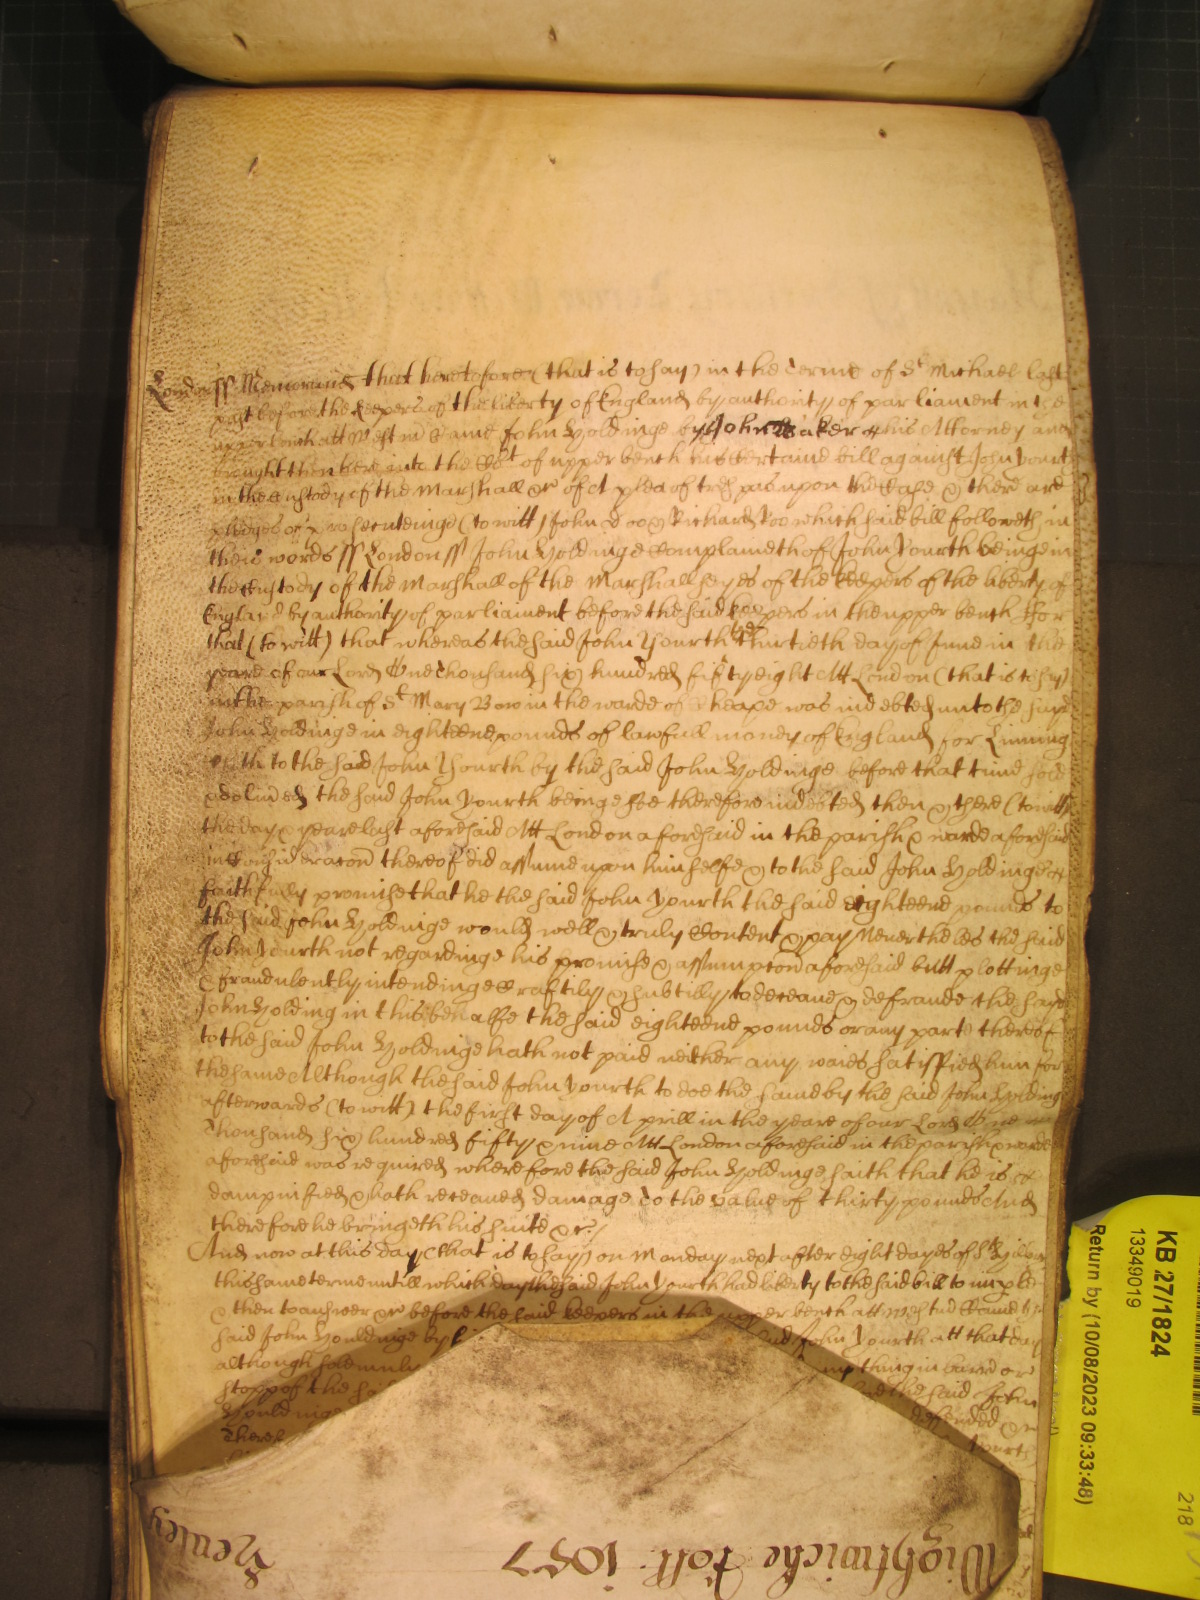 London ss Memorand that heretofore (that is to say) in the Terme of St Michael last
past before the keepers of the liberty of England by authority of parliament in the
upper bench att Westm Came John Goldinge by John Baker his Attorney and
brought then here into the Cort of upper bench his Certaine bill against John Yourth
in the Custody of the Marshall &c of A plea of trespas upon the Case & there are
pledges of prosecuteinge (to witt) John Doo & Richard Roo which said bill followeth in
theis words ss London ss John Goldinge Complaineth of John Yourth beinge in
the Custody of the Marshall of the Marshallseyes of the keepers of the liberty of
England by authority of parliament before the said keepers in the upper bench For
that (to witt) that whereas the said John Yourth the thirtieth day of June in the
yeare of our Lord One thousand six hundred fifty eight Att London (that is to say)
in the parish of St Mary Bow in the warde of Cheape was indebted unto the said
John Goldinge in eighteene pounds of lawfull money of England for Linning
Cloth to the said John Yourth by the said John Goldinge before that time sold
& delivered the said John Yourth beinge soe therefore indebted then & there (to witt)
the day & yeare last aforesaid Att London aforesaid in the parish & warde aforesaid
in Consideracon thereof did assume upon himselfe & to the said John Goldinge
faithfully promise that he the said John Yourth the said eighteene pounds to
the said John Goldinge would well & truly Content & pay Neverthelesse the said
John Yourth not regardinge his promise & assumpcon aforesaid butt plottinge
& fraudulently intendinge Craftily & subtilly to deceave & defraude the said
John Golding in this behalfe the said eighteene pounds or any parte thereof
to the said John Goldinge hath not paid neither any waies satisfied him for
the same Although the said John Yourth to doe the same by the said John Golding
afterwards (to witt) the first day of Aprill in the yeare of our Lord One
thousand six hundred fifty & nine Att London aforesaid in the parish & warde
aforesaid was required wherefore the said John Goldinge saith that he is
dampnified & hath receaved damage to the value of thirty pounds And
therefore he bringeth his suite &c
And now at this day (that is to say) on Monday next after eight dayes of St
this same terme untill which day the said John Yourth had liberty to the said bill to imple
& then to answer &c before the said keepers in the upper bench att Westm Came
said John Gouldinge by said John Yourth att that day
although solemnly any thing in barre or
stopp of the said the said John
Gouldinge deffended
There Yourth
Wightwicke Roll 1057
Henley
KB 27/1824
13349019
Return by (10/08/2023 09:33:48)
218